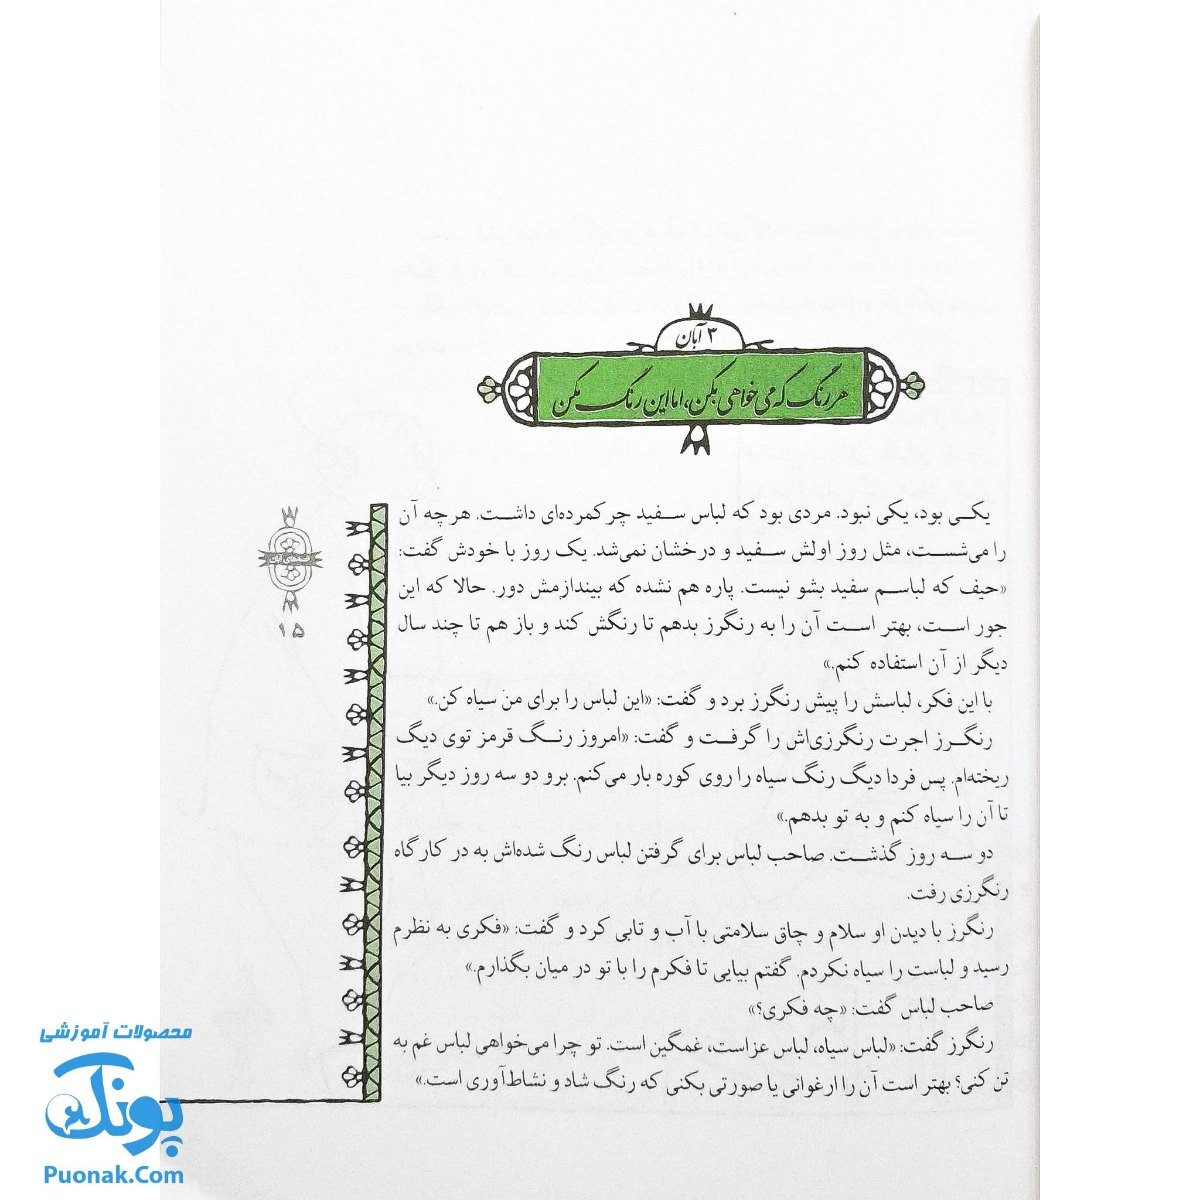 ۳ آبان
هر رنگ که می‌خواهی بکن، اما این رنگ مکن
یکی بود، یکی نبود. مردی بود که لباس سفید چرکمرده‌ای داشت. هرچه آن
را می‌شست، مثل روز اولش سفید و درخشان نمی‌شد. یک روز با خودش گفت:
«حیف که لباسم سفید بشو نیست. پاره هم نشده که بیندازمش دور. حالا که این
جور است، بهتر است آن را به رنگرز بدهم تا رنگش کند و باز هم تا چند سال
دیگر از آن استفاده کنم.»
با این فکر، لباسش را پیش رنگرز برد و گفت: «این لباس را برای من سیاه کن.»
رنگرز اجرت رنگرزی‌اش را گرفت و گفت: «امروز رنگ قرمز توی دیگ
ریخته‌ام. پس فردا دیگ رنگ سیاه را روی کوره بار می‌کنم. برو دو سه روز دیگر بیا
تا آن را سیاه کنم و به تو بدهم.»
دو سه روز گذشت. صاحب لباس برای گرفتن لباس رنگ شده‌اش به در کارگاه
رنگرزی رفت.
رنگرز با دیدن او سلام و چاق سلامتی با آب و تابی کرد و گفت: «فکری به نظرم
رسید و لباست را سیاه نکردم. گفتم بیایی تا فکرم را با تو در میان بگذارم.»
صاحب لباس گفت: «چه فکری؟»
رنگرز گفت: «لباس سیاه، لباس عزاست، غمگین است. تو چرا می‌خواهی لباس غم به
تن کنی؟ بهتر است آن را ارغوانی یا صورتی بکنی که رنگ شاد و نشاط‌آوری است.»
۱۵
محصولات آموزشی
پونک
Puonak.Com